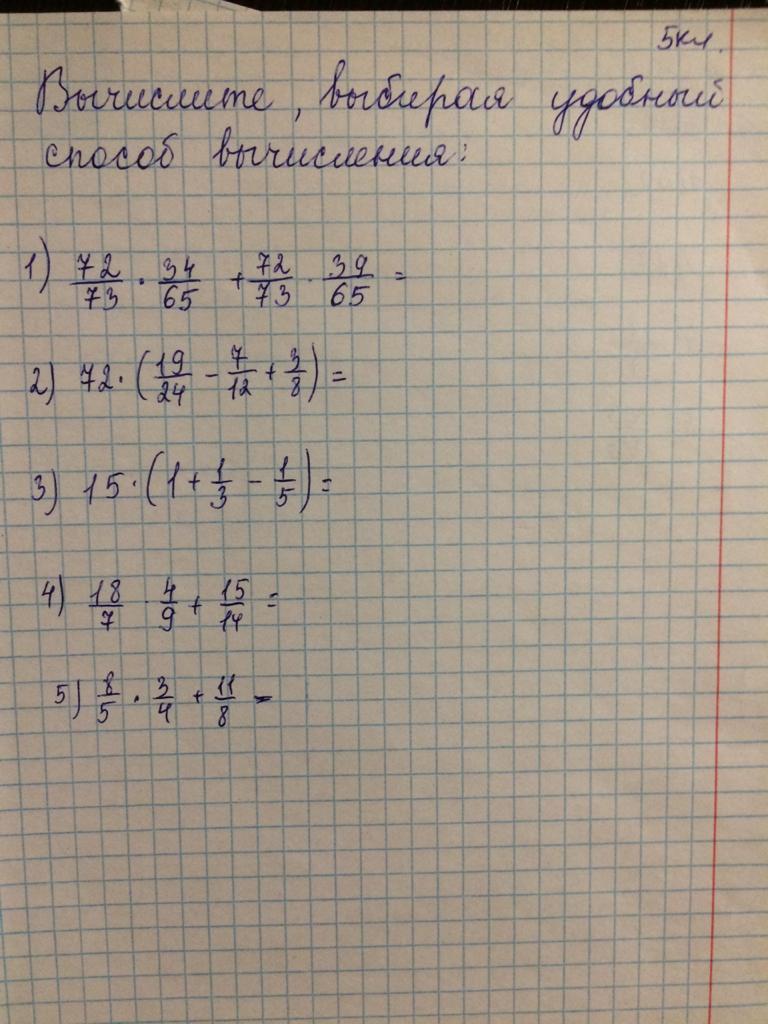 5кл.
Вычислите, выбирая удобный
способ вычисления:
1) 72/73 · 34/65 + 72/73 · 39/65 =
2) 72 · (19/24 − 7/12 + 3/8) =
3) 15 · (1 + 1/3 − 1/5) =
4) 18/7 · 4/9 + 15/14 =
5) 8/5 · 3/4 + 11/8 =